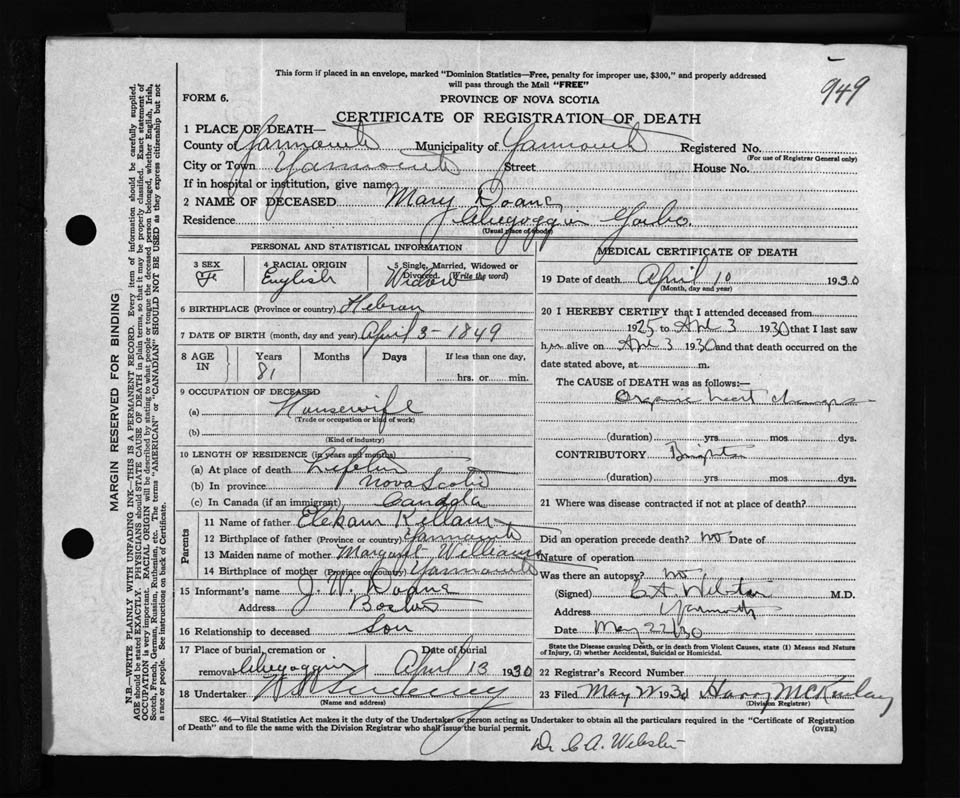 949
This form if placed in an envelope, marked "Dominion Statistics—Free, penalty for improper use, $300," and properly addressed
will pass through the Mail "FREE"
FORM 6.
PROVINCE OF NOVA SCOTIA
CERTIFICATE OF REGISTRATION OF DEATH
1 PLACE OF DEATH—
County of Yarmouth Municipality of Yarmouth Registered No.
(For use of Registrar General only)
City or Town Yarmouth Street House No.
If in hospital or institution, give name
2 NAME OF DECEASED Mary Doane
Residence Chegoggin Yar. Co.
(Usual place of abode)
PERSONAL AND STATISTICAL INFORMATION
3 SEX F
4 RACIAL ORIGIN English
5 Single, Married, Widowed or
Divorced (Write the word) Widow
6 BIRTHPLACE (Province or country) Hebron
7 DATE OF BIRTH (month, day and year) April 3-1849
8 AGE IN Years Months Days If less than one day,
81 hrs. or min.
9 OCCUPATION OF DECEASED
(a) Housewife
(Trade or occupation or kind of work)
(b)
(Kind of industry)
10 LENGTH OF RESIDENCE (in years and months)
(a) At place of death Lifetime
(b) In province Nova Scotia
(c) In Canada (if an immigrant) Canada
Parents
11 Name of father Killam
12 Birthplace of father (Province or country) Yarmouth
13 Maiden name of mother Margaret Williams
14 Birthplace of mother (Province or country) Yarmouth
15 Informant's name J. W. Doane
Address Boston
16 Relationship to deceased Son
17 Place of burial, cremation or Date of burial
removal Chegoggin April 13 1930
18 Undertaker Sweeney
(Name and address)
MEDICAL CERTIFICATE OF DEATH
19 Date of death April 10 1930
(Month, day and year)
20 I HEREBY CERTIFY that I attended deceased from
1925 to Apl 3 1930 that I last saw
him alive on Apl 3 1930 and that death occurred on the
date stated above, at m.
The CAUSE of DEATH was as follows:—
Organic heart
(duration) yrs mos dys.
CONTRIBUTORY
(duration) yrs. mos. dys.
21 Where was disease contracted if not at place of death?
Did an operation precede death? no Date of
Nature of operation
Was there an autopsy? no
(Signed) C A Webster M.D.
Address Yarmouth
Date May 22/30
State the Disease causing Death, or in death from Violent Causes, state (1) Means and Nature
of Injury, (2) whether Accidental, Suicidal or Homicidal.
22 Registrar's Record Number
23 Filed May 22 1930 Harry McKinlay
(Division Registrar)
SEC. 46—Vital Statistics Act makes it the duty of the Undertaker or person acting as Undertaker to obtain all the particulars required in the "Certificate of Registration
of Death" and to file the same with the Division Registrar who shall issue the burial permit. (OVER)
Dr C A. Webster
MARGIN RESERVED FOR BINDING
N.B.—WRITE PLAINLY WITH UNFADING INK—THIS IS A PERMANENT RECORD. Every item of information should be carefully supplied.
AGE should be stated EXACTLY. PHYSICIANS should STATE CAUSE OF DEATH in plain terms, so that it may be properly classified. Exact statement of
OCCUPATION is very important. RACIAL ORIGIN will be described by stating to what people or tongue the deceased person belonged, whether English, Irish,
Scotch, French, German, Russian, Ruthenian, etc. The terms "AMERICAN" or "CANADIAN" SHOULD NOT BE USED as they express citizenship but not
a race or people. See instructions on back of Certificate.